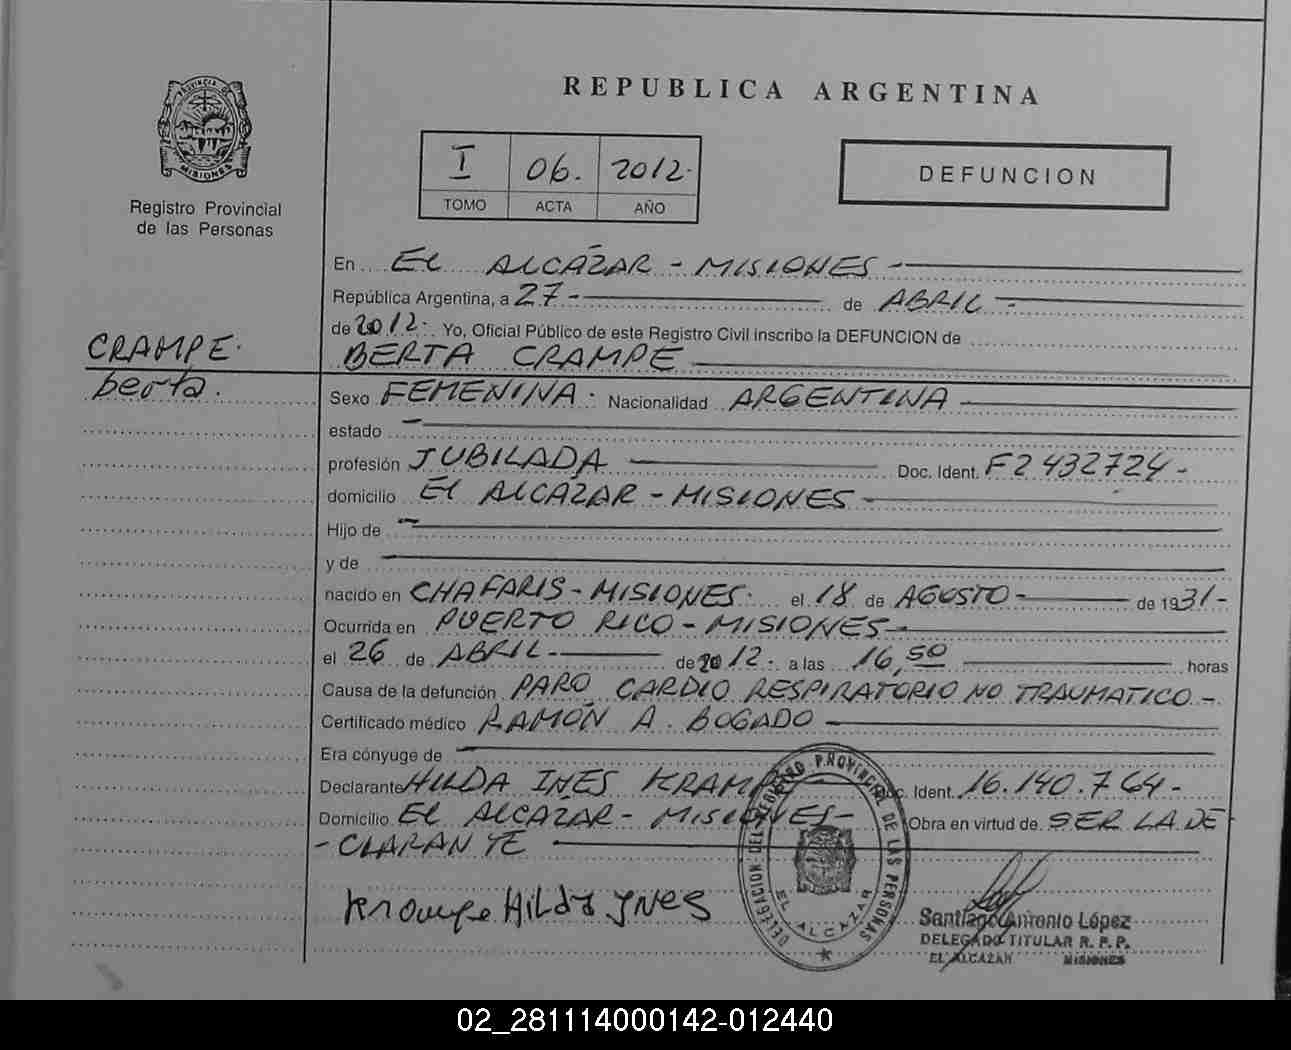 REPUBLICA ARGENTINA
PROVINCIA DE
MISIONES
Registro Provincial
de las Personas
I 06. 2012.
TOMO ACTA AÑO
DEFUNCION
En EL ALCÁZAR - MISIONES -
República Argentina, a 27 - de ABRIL -
de 2012. Yo, Oficial Público de este Registro Civil inscribo la DEFUNCION de
CRAMPE.
BERTA CRAMPE
berta.
Sexo FEMENINA. Nacionalidad ARGENTINA
estado -
profesión JUBILADA Doc. Ident. F2432724-
domicilio El ALCÁZAR - MISIONES
Hijo de -
y de -
nacido en CHAFARIS - MISIONES. el 18 de AGOSTO - de 1931-
Ocurrida en PUERTO RICO - MISIONES -
el 26 de ABRIL - de 2012. a las 16,50 horas
Causa de la defunción PARO CARDIO RESPIRATORIO NO TRAUMATICO -
Certificado médico RAMÓN A. BOGADO -
Era cónyuge de -
Declarante HILDA INES KRAMPE Doc. Ident. 16.140.764-
Domicilio El ALCÁZAR - MISIONES - Obra en virtud de SER LA DE
- CLARANTE
Krampe HiLda YNES
DELEGACION DEL REGISTRO PROVINCIAL DE LAS PERSONAS
EL ALCAZAR
Santiago Antonio López
DELEGADO TITULAR R. P. P.
EL ALCAZAR MISIONES
02_281114000142-012440